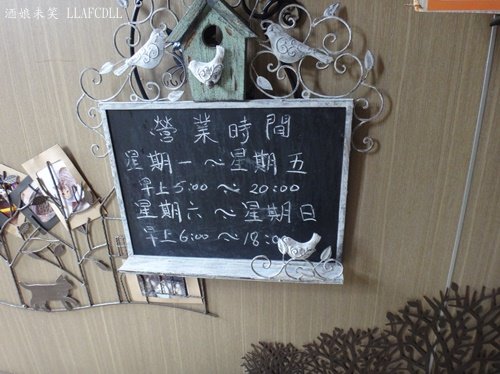 酒娘未笑 LLAFCDLL
營業時間
星期一～星期五
早上5:00～20:00
星期六～星期日
早上6:00～18:0